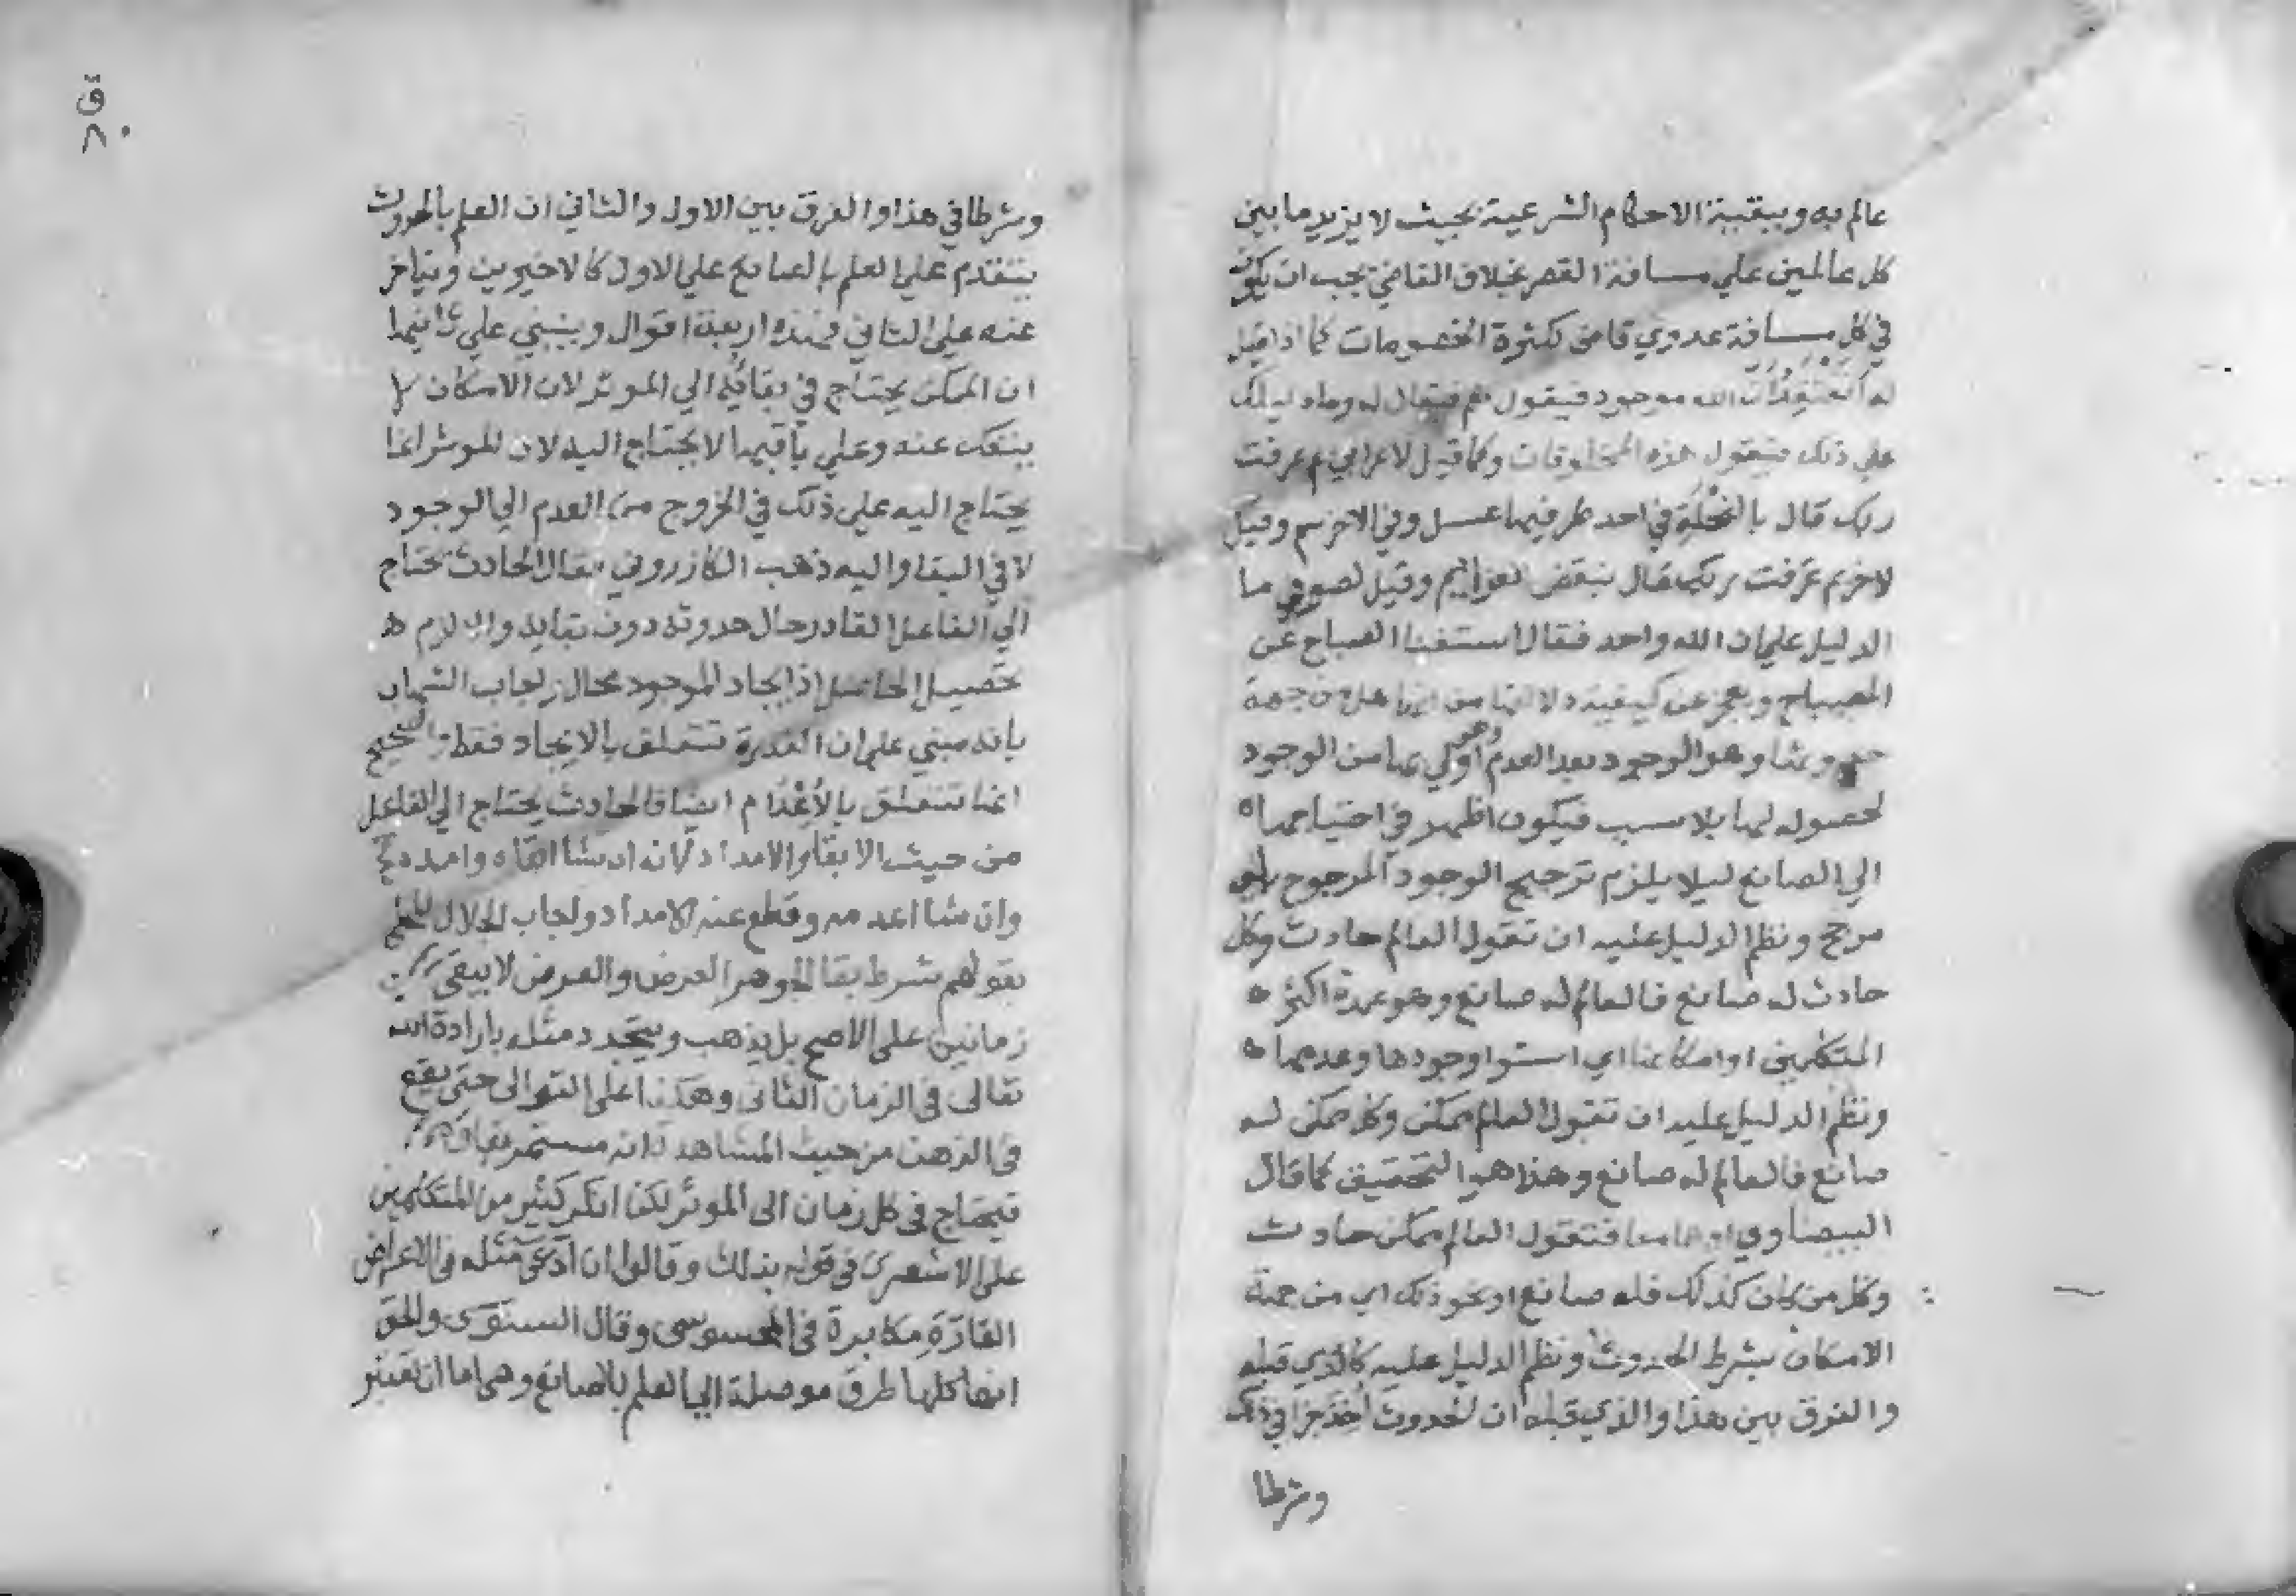 عالم به وببقية الاحكام الشرعية بحيث لا يزيد ما بين
كل عالمين علي مسافة القصر بخلاف القاضي يجب ان يكون
في كل مسافة عدوي قاض لكثرة الخصومات كما اذا قيل
له اتعتقد ان الله موجود فيقول نعم فيقال له وما دليلك
علي ذلك فيقول هذه المخلوقات وكما قيل لاعرابي بم عرفت
ربك قال بالنحلة في احد طرفيها عسل وفي الاخر سم وقيل
لاخر بم عرفت ربك فقال بنقض العزايم وقيل لصوفي ما
الدليل علي ان الله واحد فقال استغنا الصباح عن
المصباح وبعجز عن كيفية دلالتها من انها هل من جهة
حدوثها وهو الوجود بعد العدم وهو اولي بها من الوجود
لحصوله لها بلا سبب فيكون اظهر في احتياجها
الي الصانع ليلا يلزم ترجيح الوجود المرجوح بلا
مرجح ونظم الدليل عليه ان تقول العالم حادث وكل
حادث له صانع فالعالم له صانع وهو عمدة اكثر
المتكلمين او امكانها اي استوا وجودها وعدمها
ونظم الدليل عليه ان تقول العالم ممكن وكل ممكن له
صانع فالعالم له صانع وهذا هو التحقيق كما قال
البيضاوي او هما معا فتقول العالم ممكن حادث
وكل من كان كذلك فله صانع او نحو ذلك اي من جهة
الامكان بشرط الحدوث ونظم الدليل عليه كالذي قبله
والفرق بين هذا والذي قبله ان الحدوث اخذ جزا في ذلك
وشرطا
ق ٨٠
وشرطا في هذا والفرق بين الاول والثاني ان العلم بالحدوث
يتقدم علي العلم بالصانع علي الاول كالاخيرين ويتاخر
عنه علي الثاني فهذه اربعة اقوال وينبني علي ثانيها
ان الممكن يحتاج في بقائه الي الموثر لان الامكان لا
ينفك عنه وعلي باقيها لا يحتاج اليه لان الموثر انما
يحتاج اليه علي ذلك في الخروج من العدم الي الوجود
لا في البقا واليه ذهب الكازروني فقال الحادث يحتاج
الي الفاعل القادر حال حدوثه دون بقايه والا لزم
تحصيل الحاصل اذ ايجاد الموجود محال واجاب الشهاب
بانه مبني علي ان القدرة تتعلق بالايجاد فقط والصحيح
انما تتعلق بالاعدام ايضا فالحادث يحتاج الي الفاعل
من حيث الابقا والامداد لانه ان شا ابقاه وامده
وان شا اعدمه وقطع عنه الامداد واجاب الجلال المحلي
بقولهم شرط بقا الجوهر العرض والعرض لا يبقى
زمانين على الاصح بل يذهب ويتجدد مثله بارادة الله
تعالى فى الزمان الثانى وهكذا على التوالى حتى يقع
فى الذهن من حيث المشاهدة انه مستمر
فيحتاج فى كل زمان الى الموثر لكن انكر كثير من المتكلمين
على الاشعرى فى قوله بذلك وقالوا ان ادعى مثله فى الاعراض
القارة مكابرة فى المحسوس وقال السنوسى والحق
انها كلها طرق موصلة الي العلم بالصانع وهى اما ان تعتبر